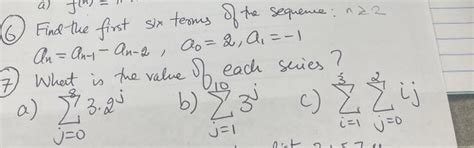 a) f(n) =
6) Find the first six terms of the sequence: n ≥ 2
aₙ = aₙ₋₁ - aₙ₋₂ , a₀ = 2, a₁ = -1
7) What is the value of each series?
a) ∑_{j=0}^{8} 3·2^j b) ∑_{j=1}^{10} 3^j c) ∑_{i=1}^{3} ∑_{j=0}^{2} ij